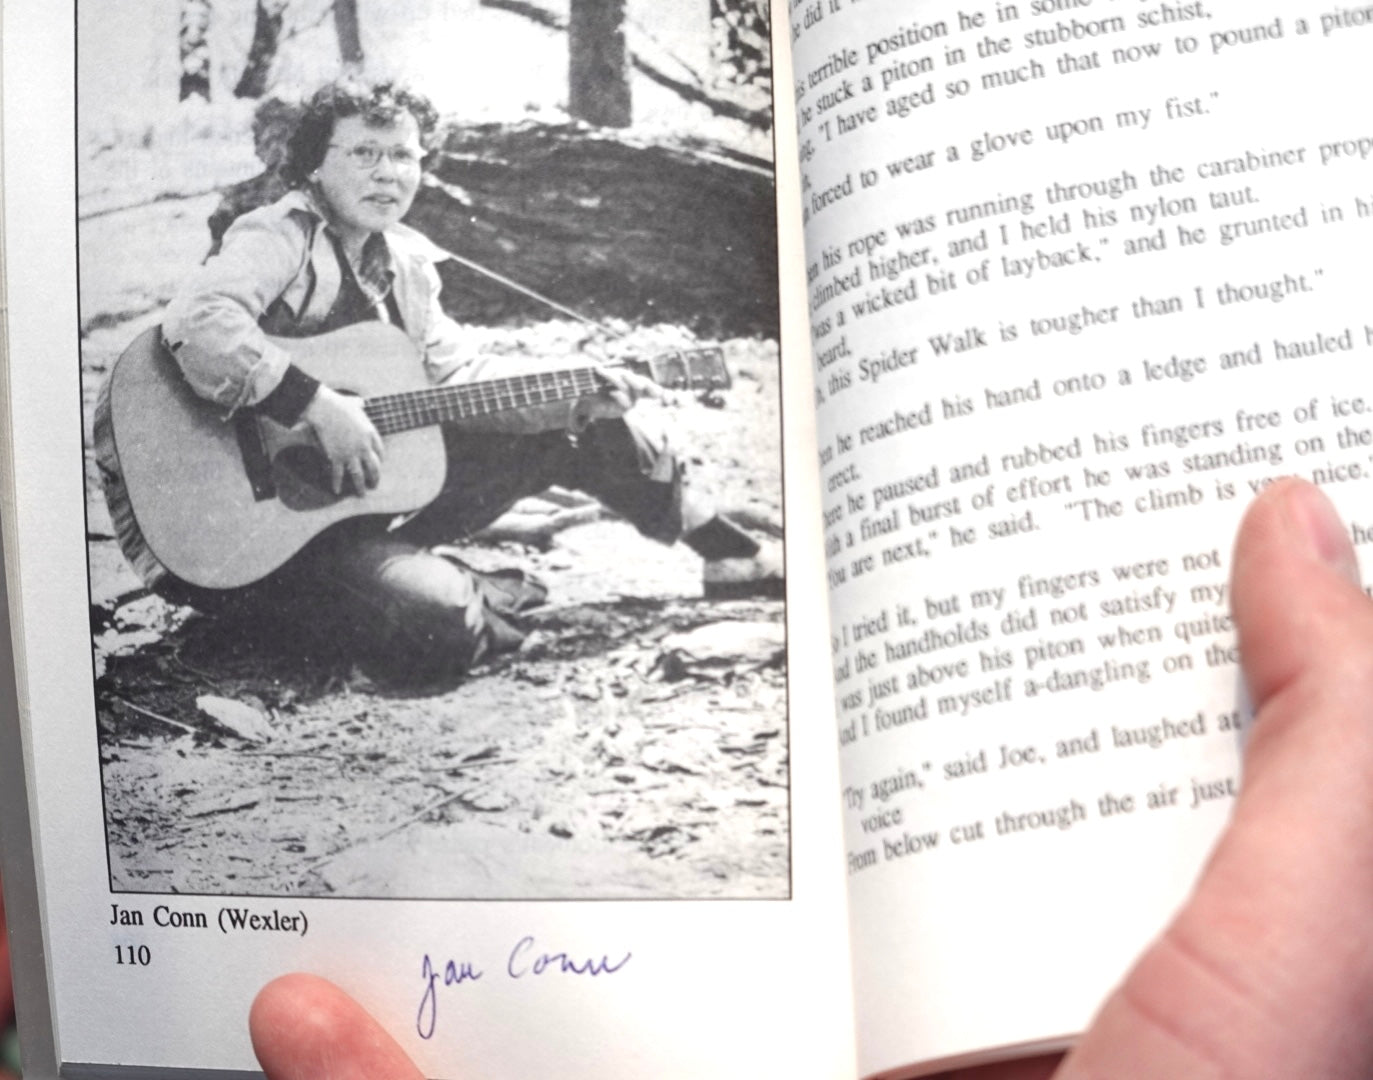 Jan Conn (Wexler)
110
Jan Conn
did it
terrible position he in some
he stuck a piton in the stubborn schist,
"I have aged so much that now to pound a piton
forced to wear a glove upon my fist."
his rope was running through the carabiner
climbed higher, and I held his nylon taut.
was a wicked bit of layback," and he grunted in
beard,
this Spider Walk is tougher than I thought."
he reached his hand onto a ledge and hauled
erect.
he paused and rubbed his fingers free of ice.
a final burst of effort he was standing on the
You are next," he said. "The climb is very nice."
I tried it, but my fingers were not
the handholds did not satisfy my
was just above his piton when quite
I found myself a-dangling on the
Try again," said Joe, and laughed at
voice
From below cut through the air just